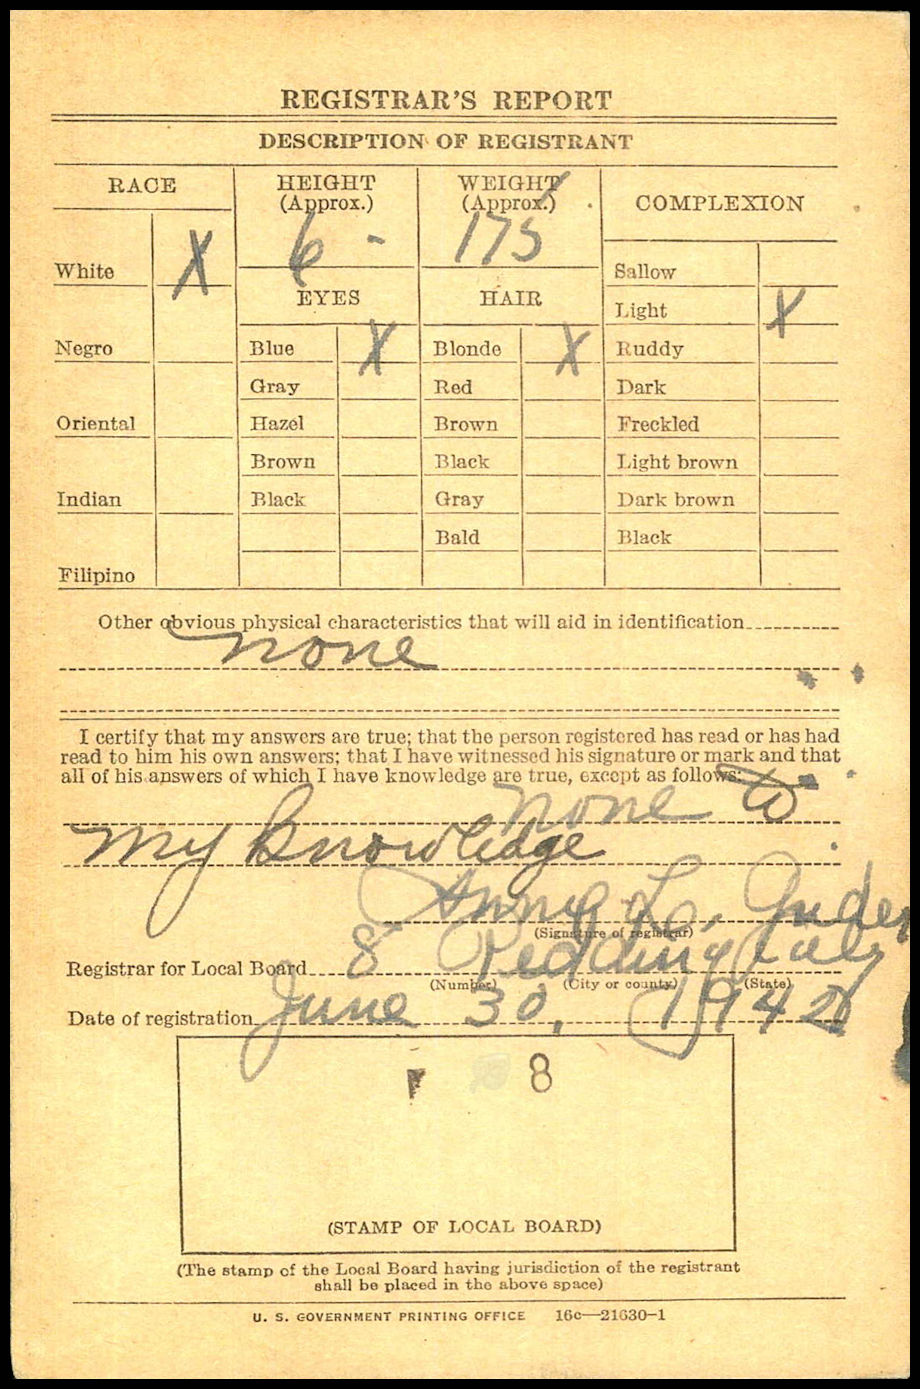 REGISTRAR'S REPORT
DESCRIPTION OF REGISTRANT
RACE
HEIGHT
(Approx.)
WEIGHT
(Approx.)
COMPLEXION
6 -
175
White X
Sallow
EYES
HAIR
Light X
Negro
Blue X
Blonde X
Ruddy
Gray
Red
Dark
Oriental
Hazel
Brown
Freckled
Brown
Black
Light brown
Indian
Black
Gray
Dark brown
Bald
Black
Filipino
Other obvious physical characteristics that will aid in identification
none
I certify that my answers are true; that the person registered has read or has had
read to him his own answers; that I have witnessed his signature or mark and that
all of his answers of which I have knowledge are true, except as follows:
none to
my knowledge
L.
(Signature of registrar)
Registrar for Local Board 8 Redding Calif
(Number) (City or county) (State)
Date of registration June 30, 1942
8
(STAMP OF LOCAL BOARD)
(The stamp of the Local Board having jurisdiction of the registrant
shall be placed in the above space)
U. S. GOVERNMENT PRINTING OFFICE 16c—21630-1